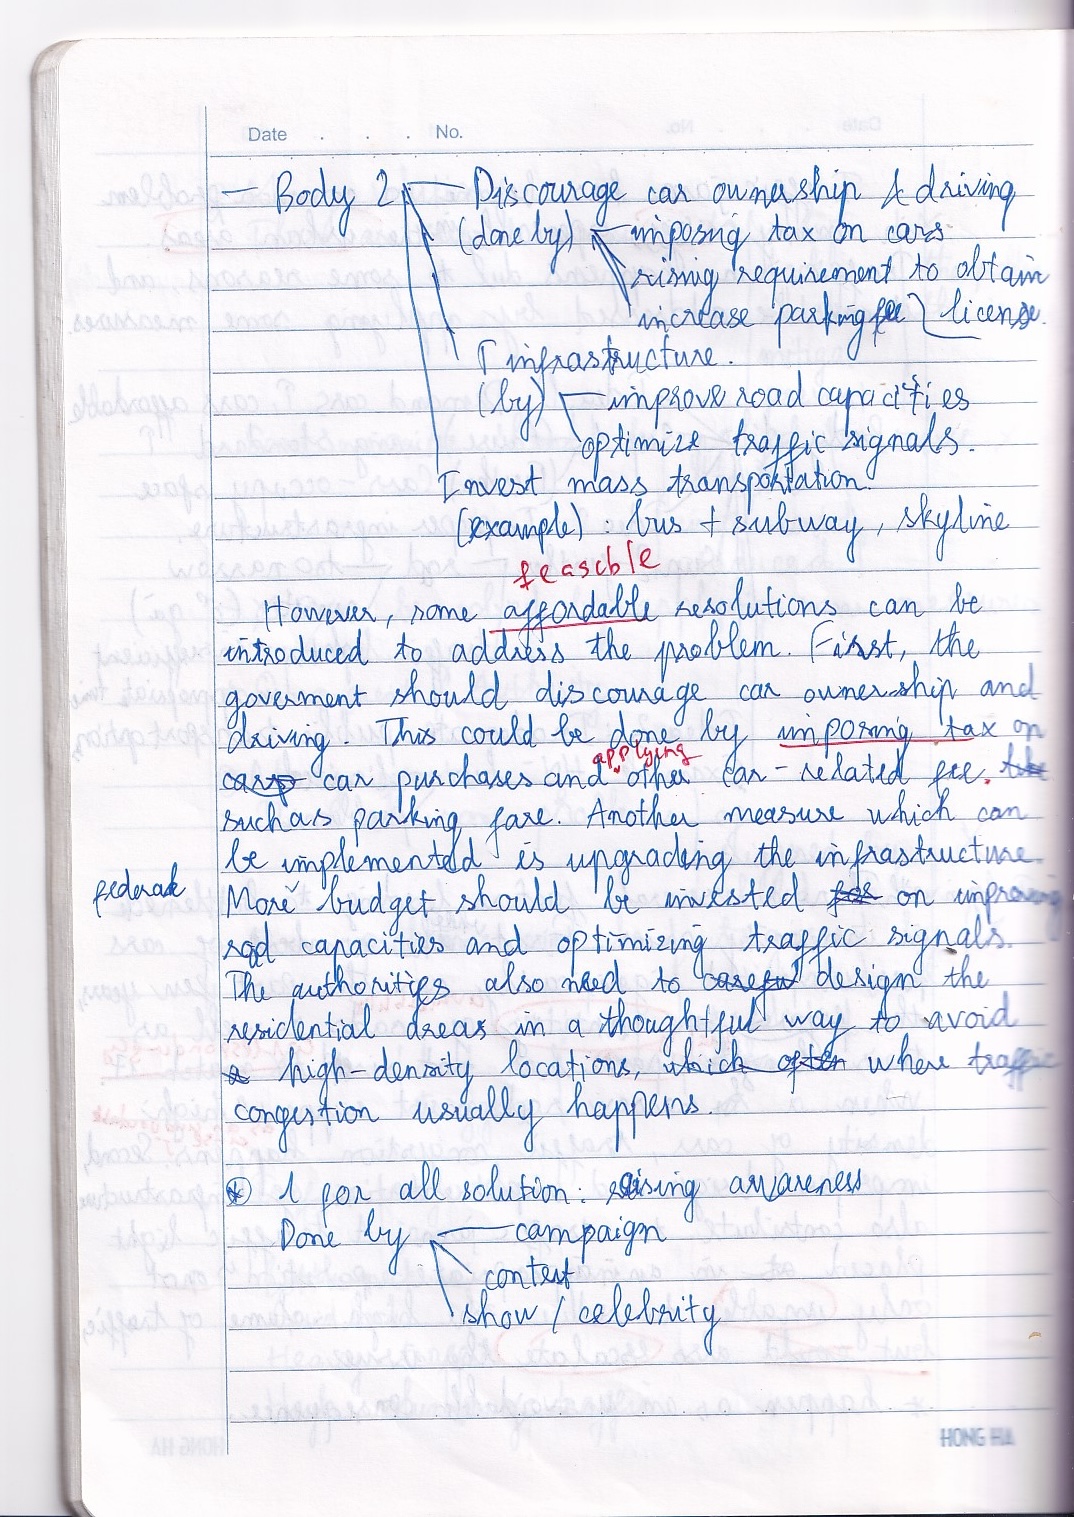 Date . . . No.
- Body 2 - Discourage car ownership & driving
(done by) - imposing tax on cars
rising requirement to obtain
increase parking fee } license.
↑ infrastructure.
(by) - improve road capacities
optimize traffic signals.
Invest mass transportation.
(example) : bus + subway, skyline
feasible
However, some affordable resolutions can be
introduced to address the problem. First, the
goverment should discourage car ownership and
driving. This could be done by imposing tax on
applying
car purchases and other car-related fee.
such as parking fare. Another measure which can
be implemented is upgrading the infrastructure.
federal
More budget should be invested for on improving
road capacities and optimizing traffic signals.
The authorities also need to careful design the
residential areas in a thoughtful way to avoid
a high-density locations, which often where traffic
congestion usually happens.
* 1 for all solution: raising awareness
Done by - campaign
contest
show / celebrity
HONG HA